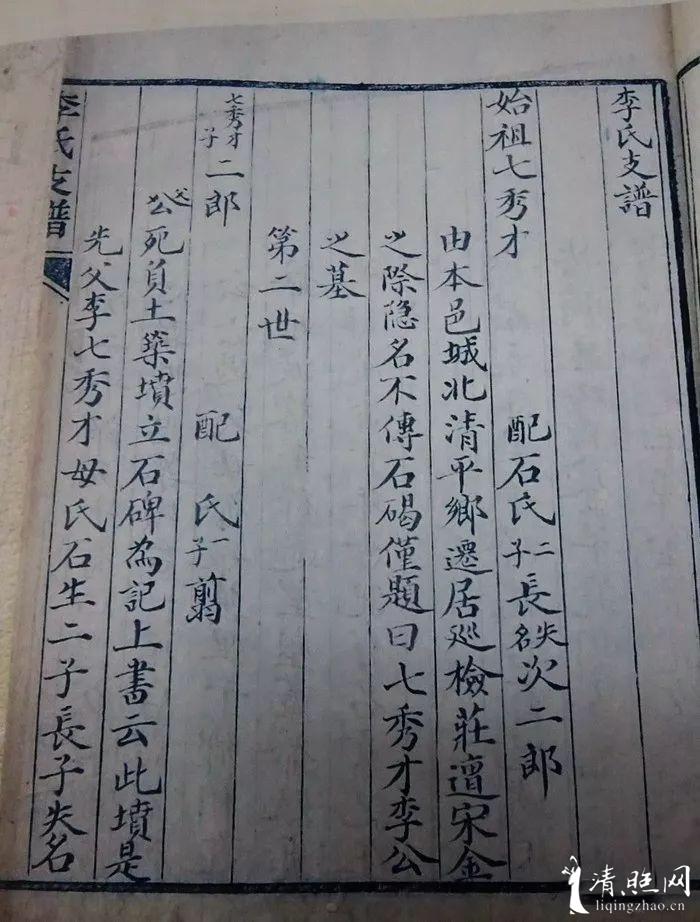 李氏支譜
始祖七秀才 配石氏二子長失名次二郎
由本邑城北清平鄉遷居廵檢莊適宋金
之際隐名不傳石碣僅題曰七秀才李公
之墓
第二世
七秀才子二郎 配 氏一子翦
父公死負土築墳立石碑為記上書云此墳是
先父李七秀才母氏石生二子長子失名
李氏支譜
清照网
liqingzhao.cn